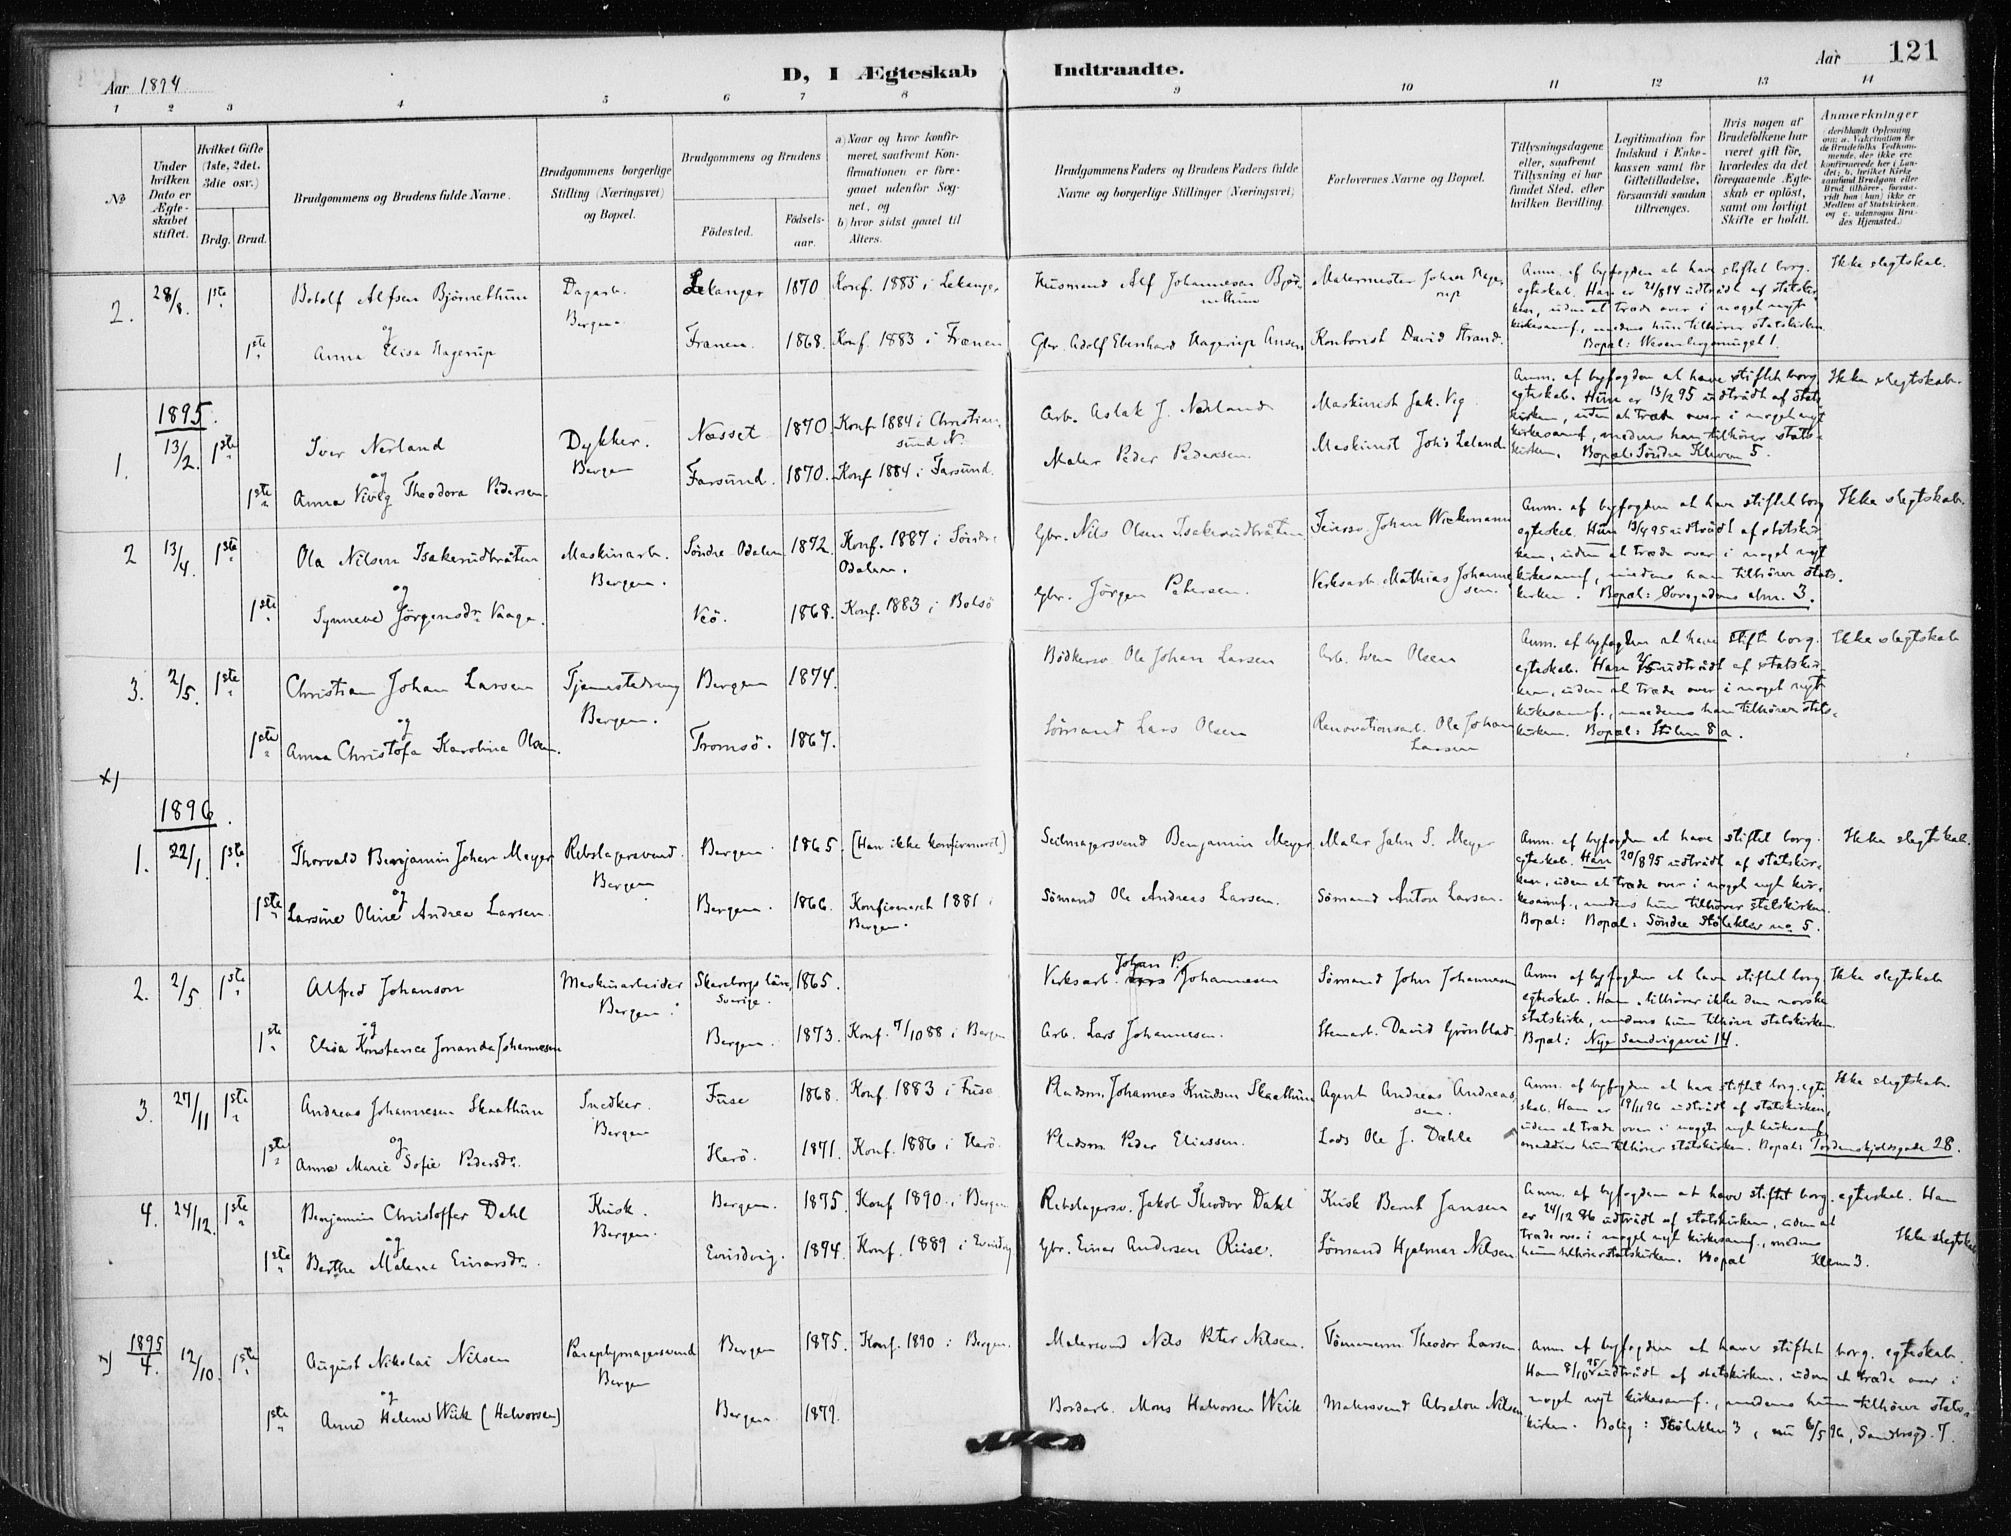 Aar 1894
D, I Ægteskab Indtraadte.
Aar
121
1 2 3 4 5 6 7 8 9 10 11 12 13 14
No
Under hvilken Dato er Ægteskabet stiftet.
Hvilket Gifte (1ste, 2det, 3die osv.)
Brdg. Brud.
Brudgommens og Brudens fulde Navne.
Brudgommens borgerlige Stilling (Næringsvei) og Bopæl.
Brudgommens og Brudens
Fødested.
Fødselsaar.
a) Naar og hvor konfirmeret, saafremt Konfirmationen er foregaaet udenfor Sognet, og
b) hvor sidst gaaet til Alters.
Brudgommens Faders og Brudens Faders fulde Navne og borgerlige Stillinger (Næringsvei)
Forlovernes Navne og Bopæl.
Tillysningsdagene eller, saafremt Tillysning ei har fundet Sted, efter hvilken Bevilling.
Legitimation for Indskud i Enkekassen samt for Giftetilladelse, forsaavidt saadan tiltrænges.
Hvis nogen af Brudefolkene har været gift før, hvorledes da det foregaaende Ægteskab er opløst, samt om lovligt Skifte er holdt.
Anmerkninger
2. 28/8. 1ste Botolf Alfsen Bjørnethun Dagarb. Bergen. Lekanger 1870 Konf. 1885 i Lekanger
Husmand Alf Johannesen Bjørnethun Malermester Johan Hagerup
og
1ste Anna Elisa Hagerup Frænen. 1868. Konf. 1883 i Frænen
Gbr. Adolf Ebenhard Hagerup Ansen Kontorist David Strand.
Anm. af byfogden at have stiftet borg.
egteskab. Han er 21/8 94 udtrådt af statskirken, uden at træde over i noget nyt
kirkesamf., medens hun tilhører statskirken.
Bopæl: Wesenbergsmuget 1.
Ikke slegtskab.
1895.
1. 13/2. 1ste Iver Nerland Dykker. Bergen Næsset 1870. Konf. 1884 i Christiansund N.
Arb. Aslak J. Nerland Maskinist Jak. Vig
og
1ste Anna Vivig Theodora Pedersen. Farsund. 1870. Konf 1884 i Farsund.
Maler Peder Pedersen. Maskinist Johs Leland
Anm. af byfogden at have stiftet borg.
egteskab. Hun er 13/2 95 udtrådt af statskirken, uden at træde over i noget nyt
kirkesamf., medens han tilhører statskirken. Bopæl: Søndre Kleven 5.
Ikke slegtskab.
2 13/4. 1ste Ola Nilsen Isakerudbråten Maskinarb. Bergen. Søndre Odalen 1872. Konf. 1887 i Søndre Odalen.
Gbr. Nils Olsen Isakerudbråten Feiersv. Johan Wiekmann
og
1ste Synneve Jørgensdr. Vaage. Veö. 1868. Konf. 1883 i Bolsö
Gbr. Jørgen Petersen. Verksarb. Mathias Johannesen.
Anm. af byfogden at have stiftet borg
egteskab. Hun 13/4 95 udtrådt af statskirken, uden at træde over i noget nyt
kirkesamf., medens han tilhører statskirken. Bopæl: Øvregadens alm. 3.
Ikke slegtskab.
3. 2/5. 1ste Christian Johan Larsen Tjenestedreng Bergen. Bergen 1874.
Bødkersv. Ole Johan Larsen Arb. Sven Olsen
og
1ste Anna Christofa Karolina Olsen. Tromsö. 1867.
Sømand Lars Olsen Renovationsarb. Ole Johan Larsen
Anm. af byfogden at have stift. borg.
egteskab. Han 2/5 udtrådt af statskirken, uden at træde over i noget nyt
kirkesamf., medens han tilhører statskirken. Bopæl: Stølen 8a.
Ikke slegtskab
x)
1896.
1. 22/1. 1ste Thorvald Benjamin Johan Meyer Rebslagersvend. Bergen Bergen. 1865. (Han ikke konfirmeret)
Seilmagersvend Benjamin Meyer Maler Jahn S. Meyer
og
1ste Larsine Oline Andrea Larsen. Bergen. 1866. Konfirmeret 1881 i Bergen.
Sømand Ole Andreas Larsen. Sømand Anton Larsen.
Anm. af byfogden at have stiftet borg.
egteskab. Han 20/8 95 udtrådt af statskirken, uden at træde over i noget nyt kirkesamf., medens hun tilhører statskirken.
Bopæl: Bopæl: Søndre Stølekleven no. 5.
Ikke slegtskab.
2. 2/5. 1ste Alfred Johanson Maskinarbeider Bergen. Skaraborgs län, Sverige. 1865.
Verksarb. Johan P. Johannesen Sømand John Johannesen
og
1ste Elisa Konstance Jonanda Johannesen Bergen. 1873. Konf. 7/10 88 i Bergen
Arb. Lars Johannesen. Stenarb. David Grönblad
Anm. af byfogden at have stiftet borg
egteskab. Han tilhører ikke den norske
statskirke, medens hun tilhører statskirken.
Bopæl: Nye Sandvigsvei 14.
Ikke slegtskab
3. 27/11 1ste Andreas Johannesen Skaathun Snedker. Bergen Fuse 1868. Konf. 1883 i Fuse
Pladsm. Johannes Knudsen Skaathun Agent Andreas Andreassen.
og
1ste Anna Marie Sofie Pedersdr. Herö. 1871. Konf. 1886 i Herö.
Pladsm. Peder Eliassen. Lods Ole J. Dahle
Anm. af byfogden at have stiftet borg. egteskab. Han er 19/11 96 udtrådt af statskirken,
uden at træde over i noget nyt kirkesamf.,
medens hun tilhører statskirken. Bopæl: Tordenskjoldsgade 28.
Ikke slegtskab.
4. 24/12. 1ste Benjamin Christoffer Dahl Kusk. Bergen. Bergen. 1875. Konf 1890 i Bergen
Rebslagersv. Jakob Theodor Dahl Kusk Bernt Jansen
og
1ste Berthe Malene Einarsdr. Evindvig. 1874. Konf. 1889 i Evindvig
Gbr. Einar Andersen Riise. Sømand Hjalmar Nilsen
Anm. af byfogden at have stiftet borg. egteskab. Han
er 24/12 86 udtrådt af statskirken, uden at
træde over i noget nyt kirkesamf., medens
hun tilhører statskirken. Bopæl Kleven 3.
Ikke slegtskab
x) 1895/4. 12/10. 1ste August Nikolai Nilsen Paraplymagersvend Bergen Bergen 1875. Konf. 1890 i Bergen.
Malersvend Nils Peter Nilsen. Tömmerm. Theodor Larsen
og
1ste Anna Helene Wiik (Halvorsen) Bergen. 1872.
Bordarb. Mons Halvorsen Wiik Malersvend Absalon Nilsen
Anm af byfogden at have stiftet borg. egteskab.
Han 8/10 95 udtrådt af statskirken, uden at træde over i
noget nyt kirkesamf., medens hun tilhører statskirken. Bolig: Stølekleven 3, nu 6/5 96, Sandbrogd. 7.